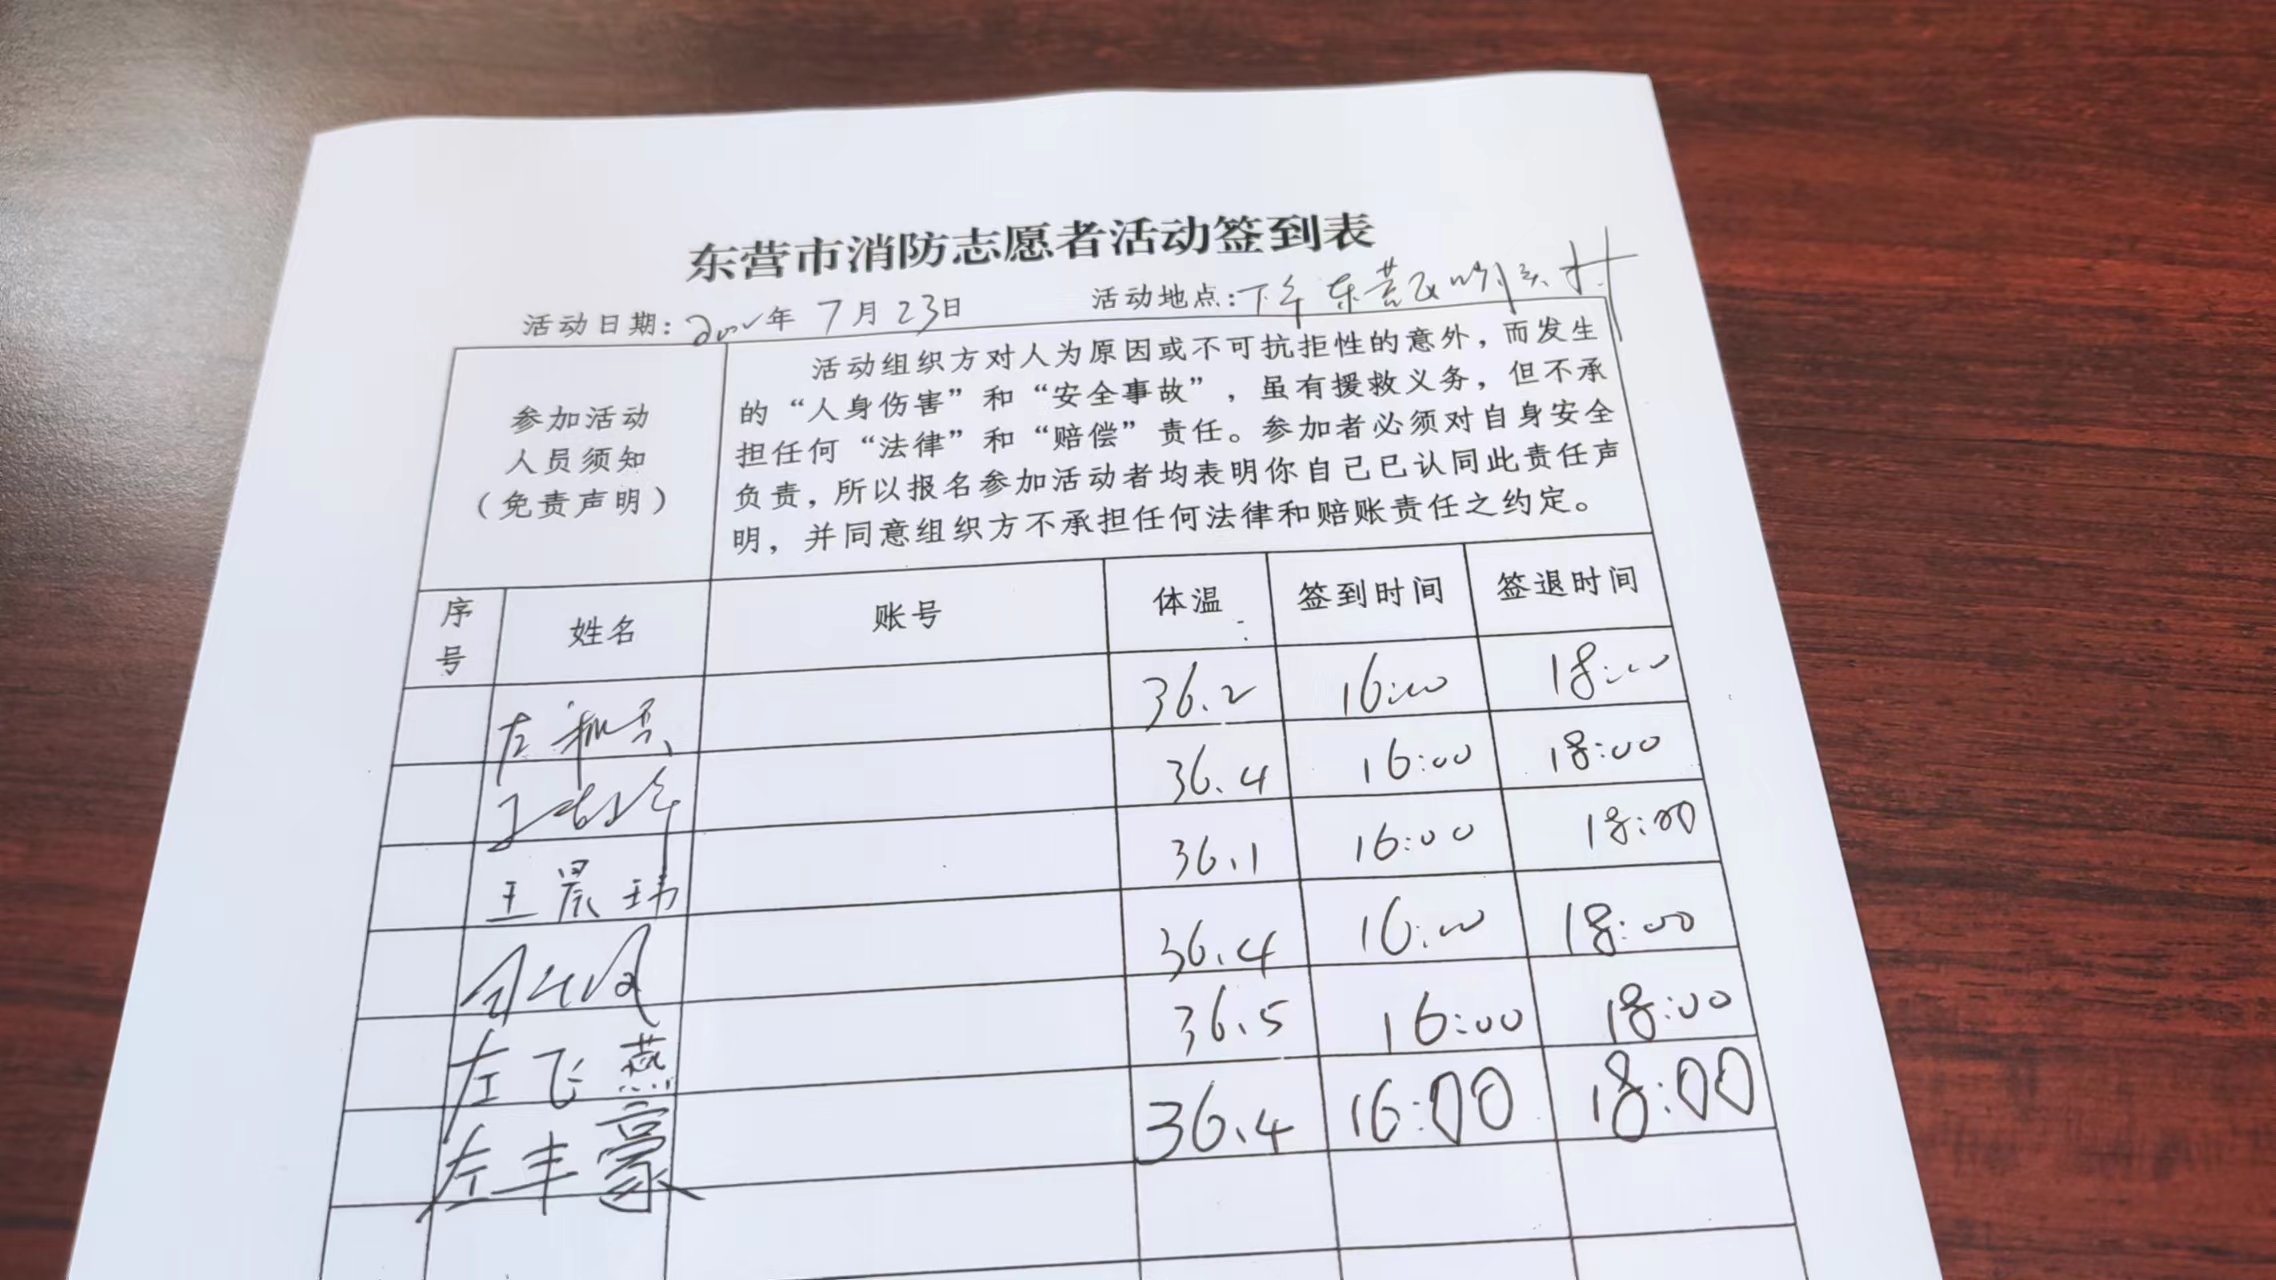 东营市消防志愿者活动签到表
活动日期: 2022年 7月23日 活动地点: 下午 东营区
参加活动
人员须知
（免责声明）
活动组织方对人为原因或不可抗拒性的意外，而发生
的“人身伤害”和“安全事故”，虽有援救义务，但不承
担任何“法律”和“赔偿”责任。参加者必须对自身安全
负责，所以报名参加活动者均表明你自己已认同此责任声
明，并同意组织方不承担任何法律和赔账责任之约定。
序号 姓名 账号 体温 签到时间 签退时间
左 36.2 16:00 18:00
36.4 16:00 18:00
王晨玮 36.1 16:00 18:00
36.4 16:00 18:00
左飞燕 36.5 16:00 18:00
左丰豪 36.4 16:00 18:00